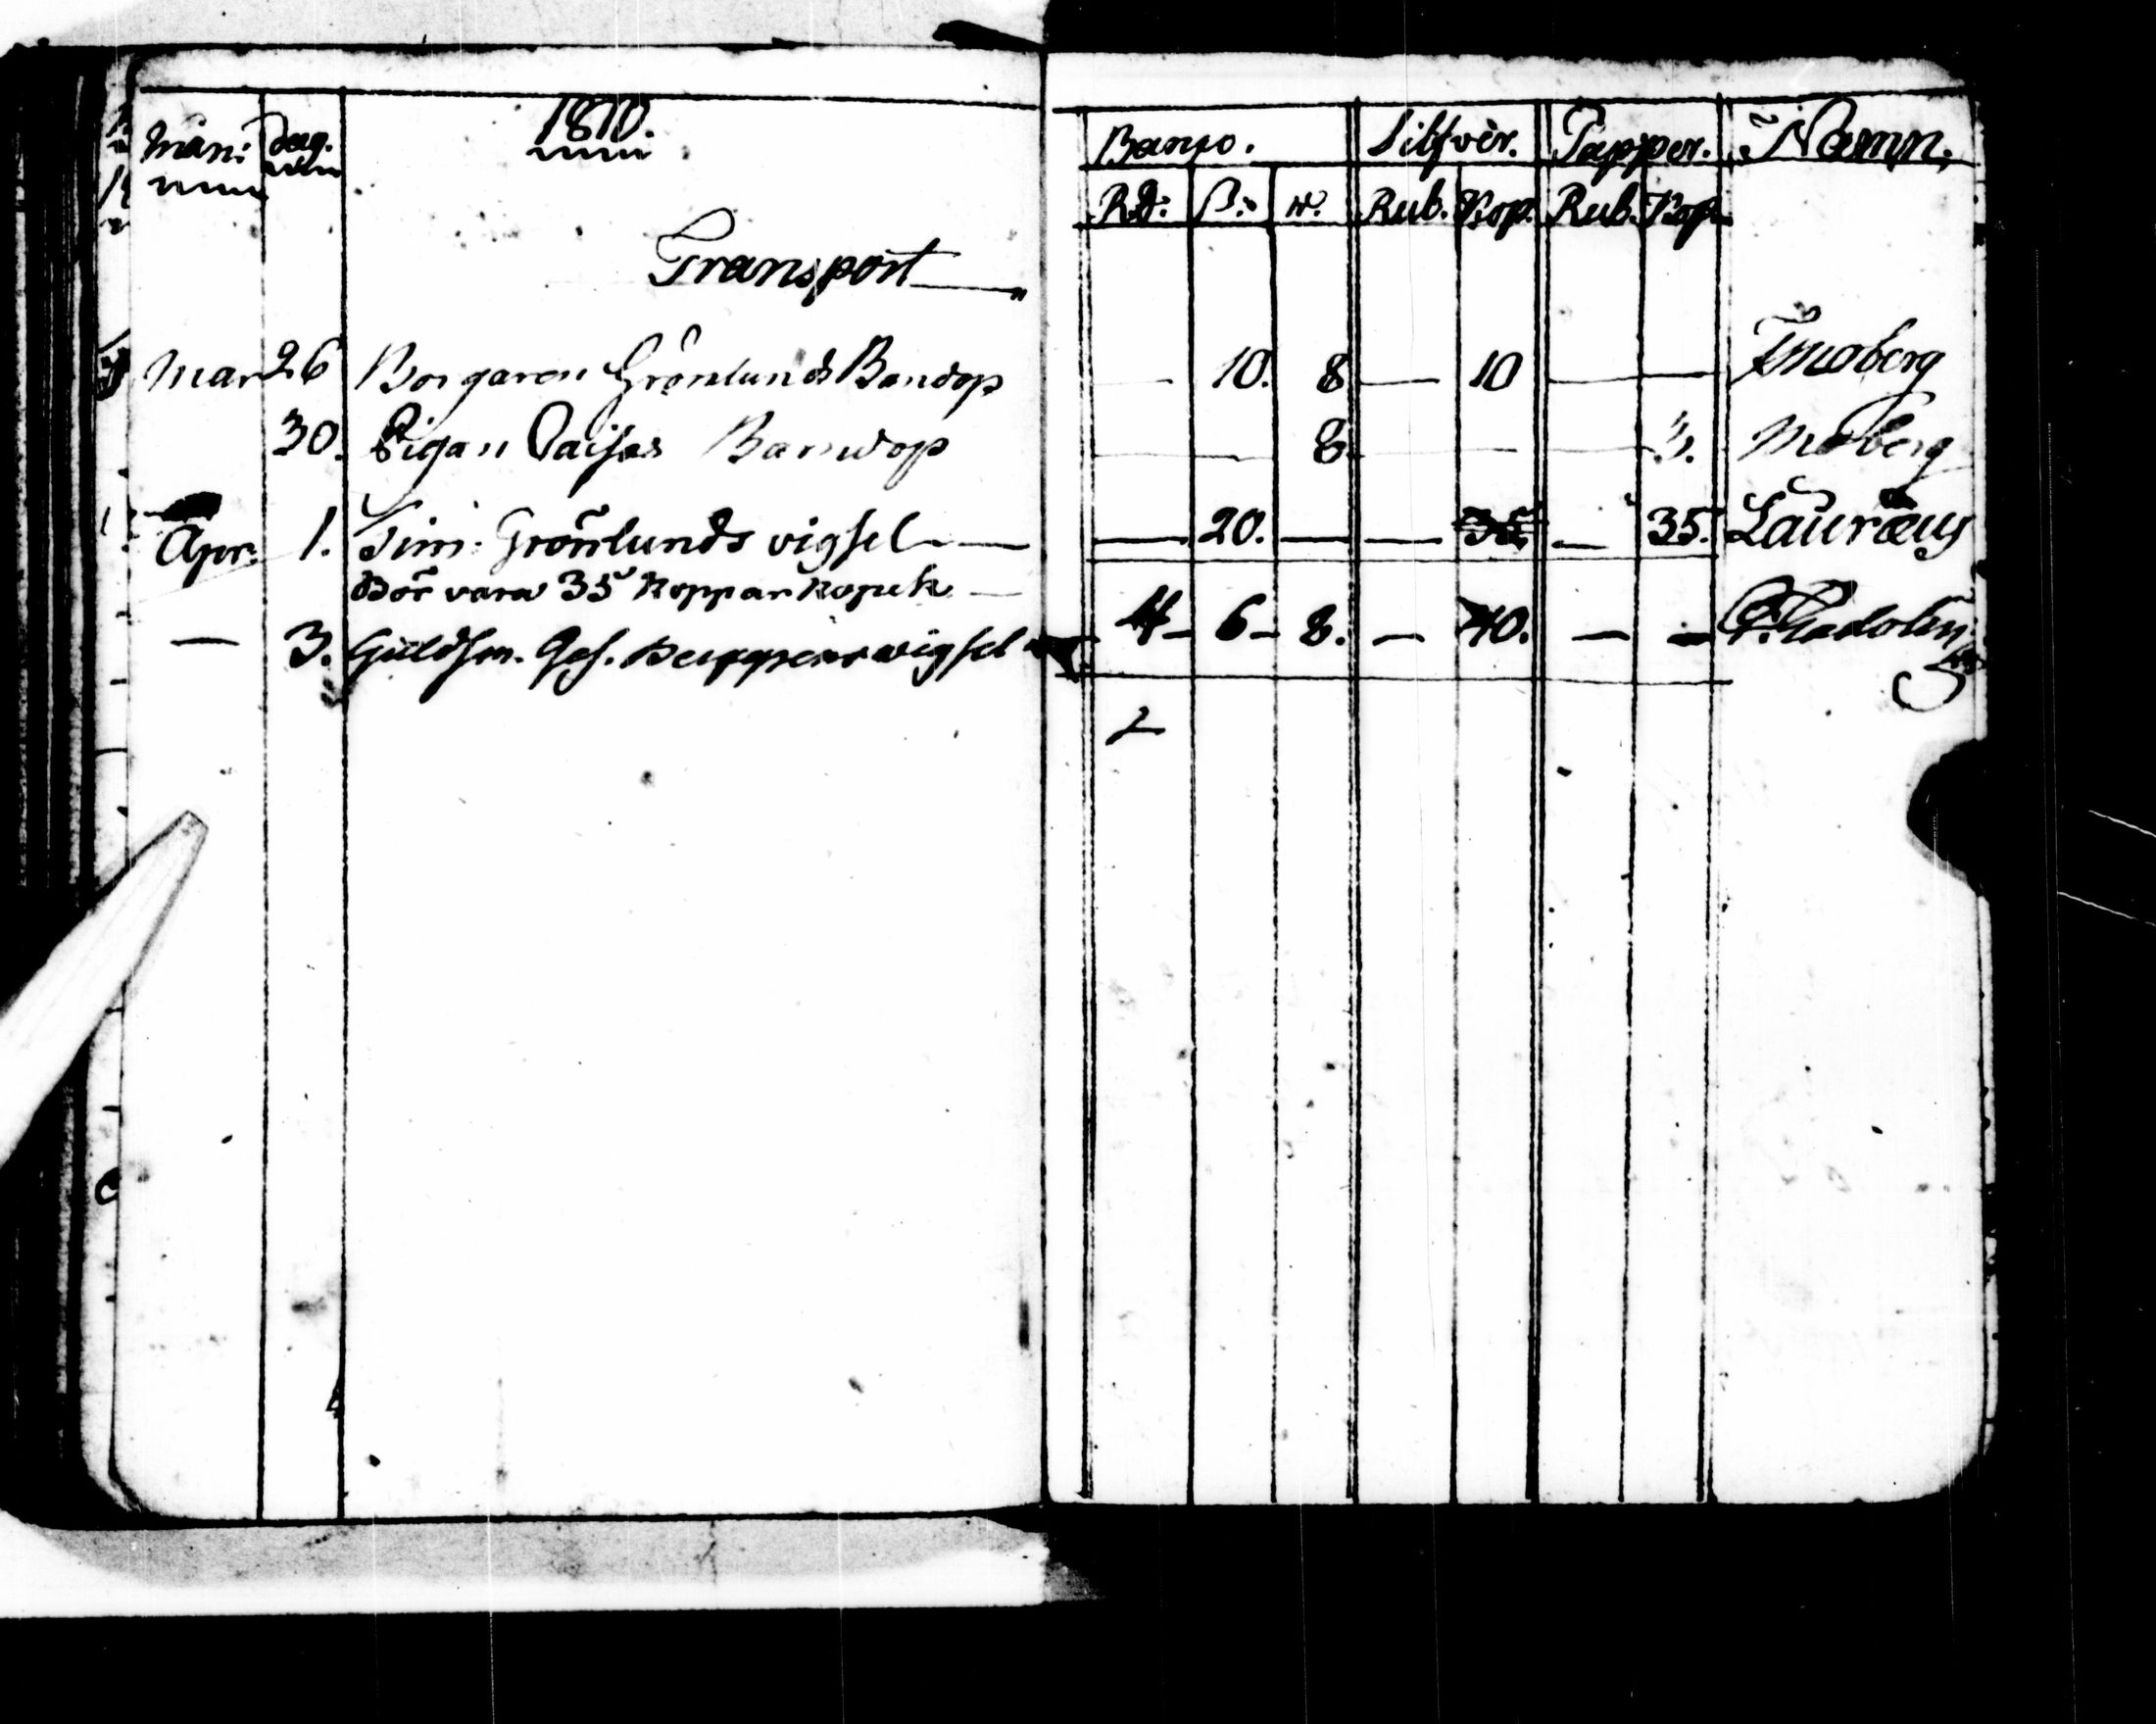 Mån: Dag. 1810. Banco. Silfver. Papper. Namn.
Rd: ß: rst. Rub. Kop. Rub. Kop.
Transport
Mar 26 Borgaren Grönlunds Barndop — 10. 8 — 10 — — Moberg
30. Pigan Caisas Barndop — — 8. — — — 3. Moberg
Apr. 1. Sim. Grönlunds vigsel — — 20. — — 35 — 35. Lauræus
Bör vara 35 Kopparkopek —
— 3. Guldsm. Ges. vigsel 4 — 6 — 8. — 40. — — Gadolin
2